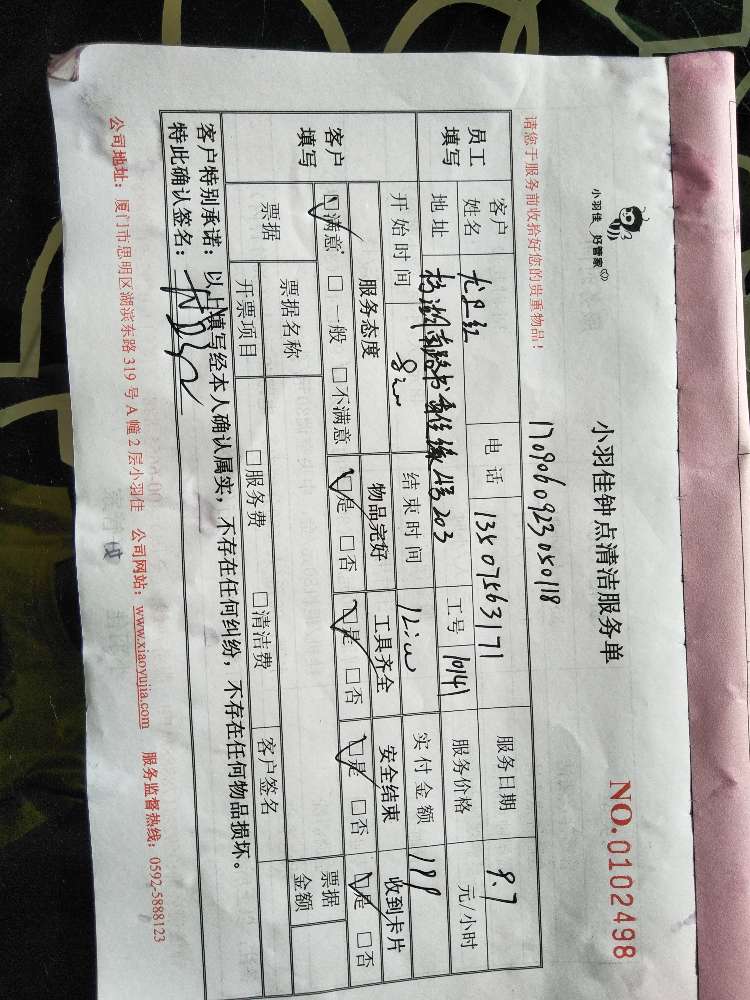 小羽佳 好管家
小羽佳钟点清洁服务单
NO.0102498
请您于服务前收拾好您的贵重物品！
1709060923050118
员工填写 客户姓名 电话 13507563171 服务日期 9.7
地址 203 工号 10141 服务价格 元/小时
开始时间 8:00 结束时间 12:00 实付金额 199
客户填写 服务态度 物品完好 工具齐全 安全结束 收到卡片
☑满意 □一般 □不满意 ☑是 □否 ☑是 □否 ☑是 □否 ☑是 □否
票据 票据名称 票据金额
开票项目 □服务费 □清洁费 客户签名
客户特别承诺：以上填写经本人确认属实，不存在任何纠纷，不存在任何物品损坏。
特此确认签名：
公司地址：厦门市思明区湖滨东路 319 号 A 幢 2 层小羽佳 公司网站：www.xiaoyujia.com 服务监督热线：0592-5888123